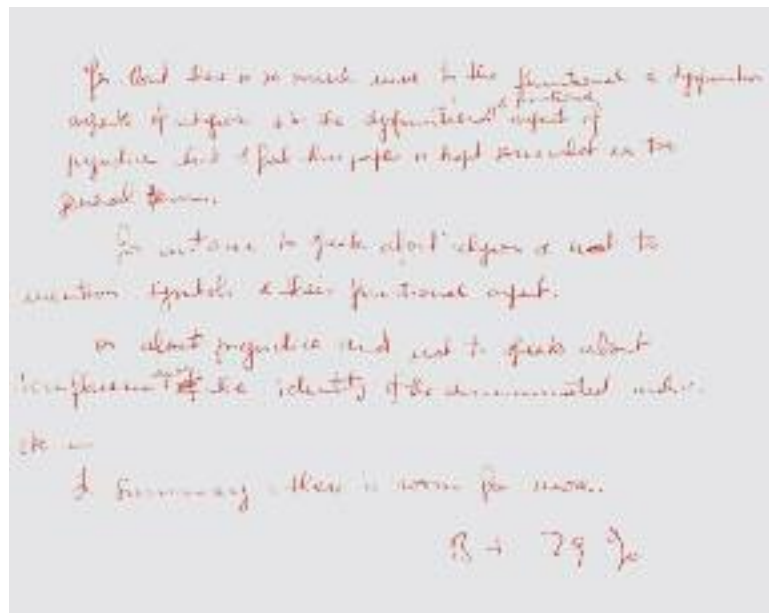 is so much more to the functional & dysfunction
aspects of religion or the dysfunctional & functional aspect of
prejudice but I feel this paper is kept somewhat in the
general terms.
For instance to speak about religion & not to
mention symbols & their functional aspect.
or about prejudice and not to speak about
the identity of the
etc —
summary there is room for more.
B+ 79 %